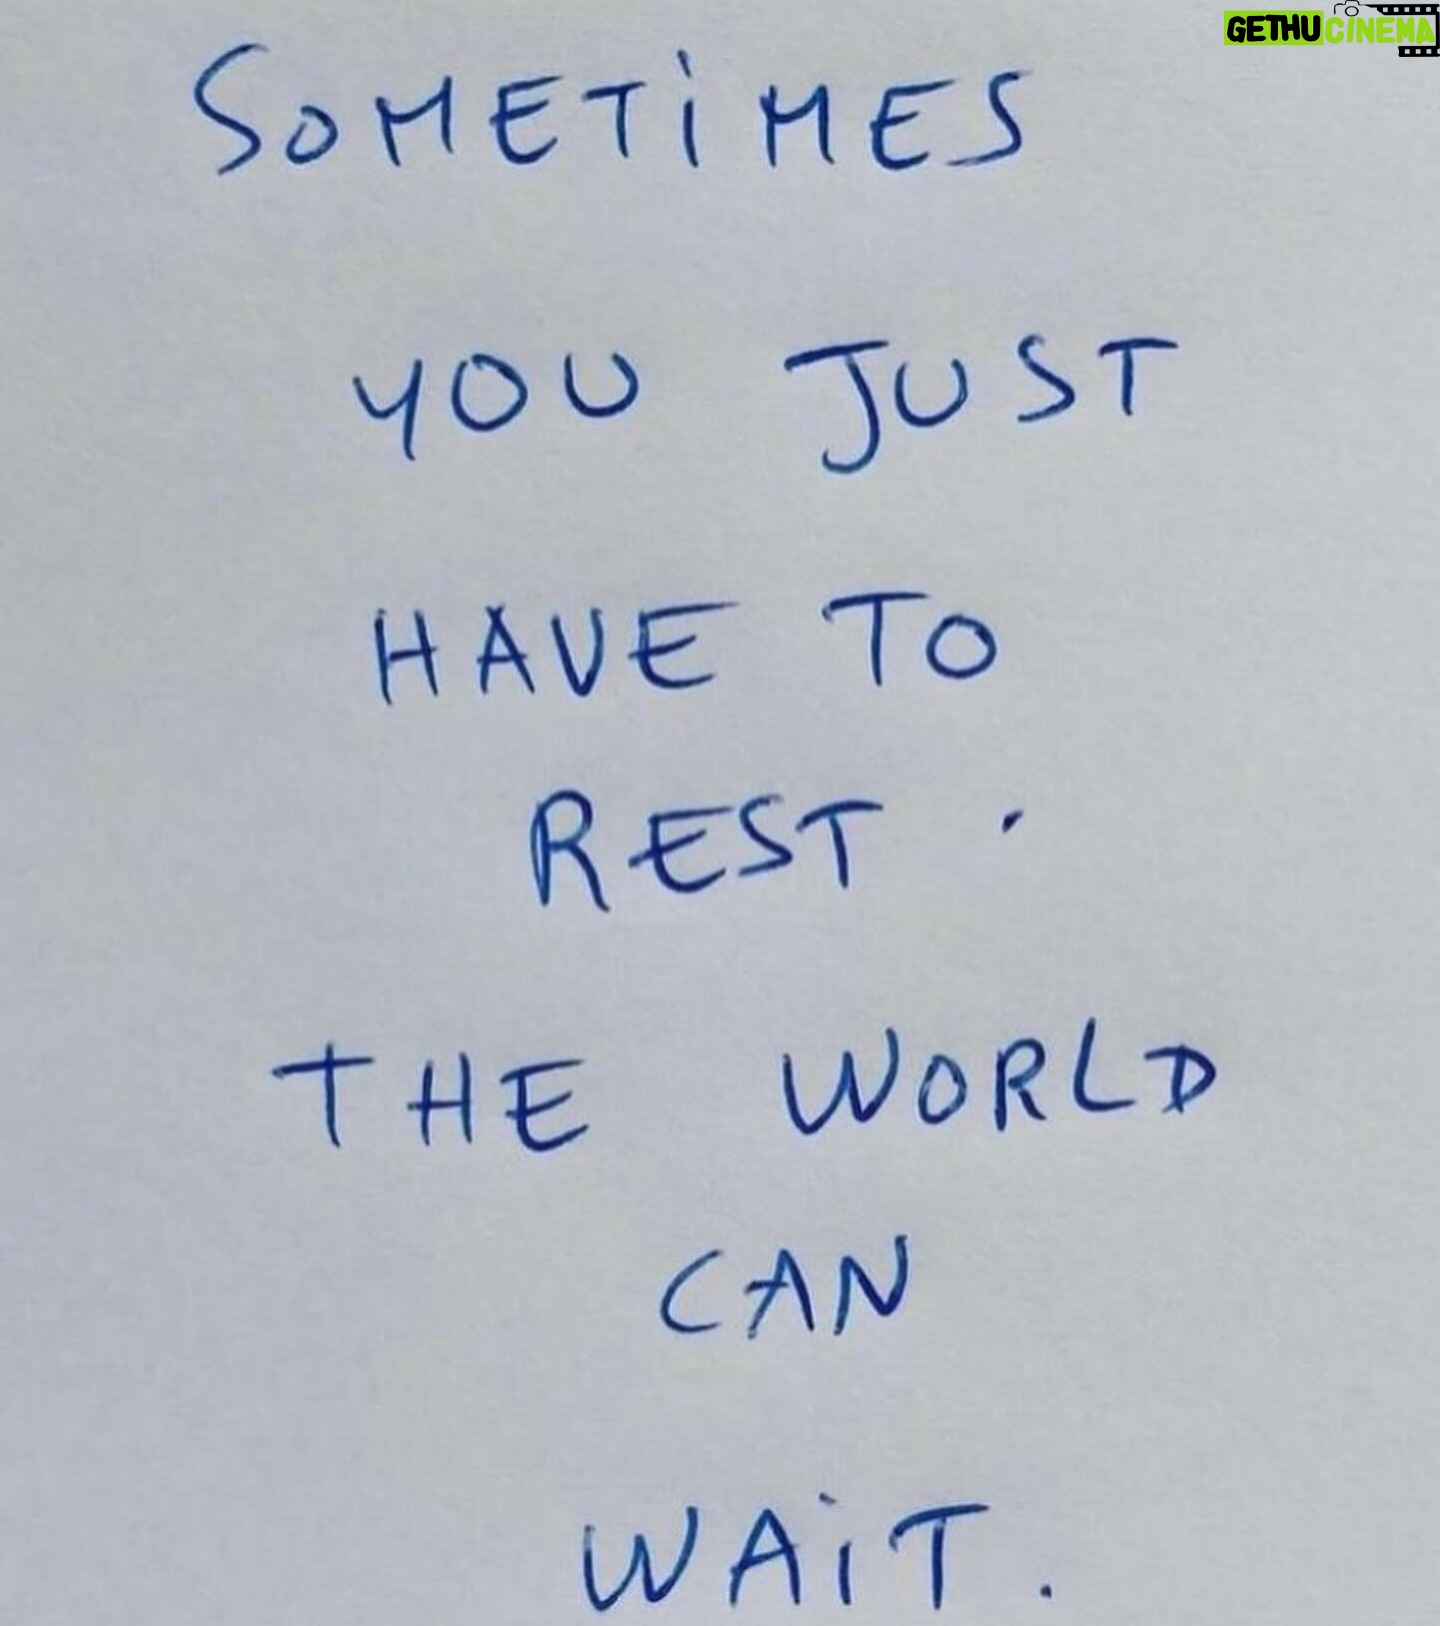 GETHUCINEMA
SOMETiMES
YOU JUST
HAVE TO
REST.
THE WORLD
CAN
WAiT.